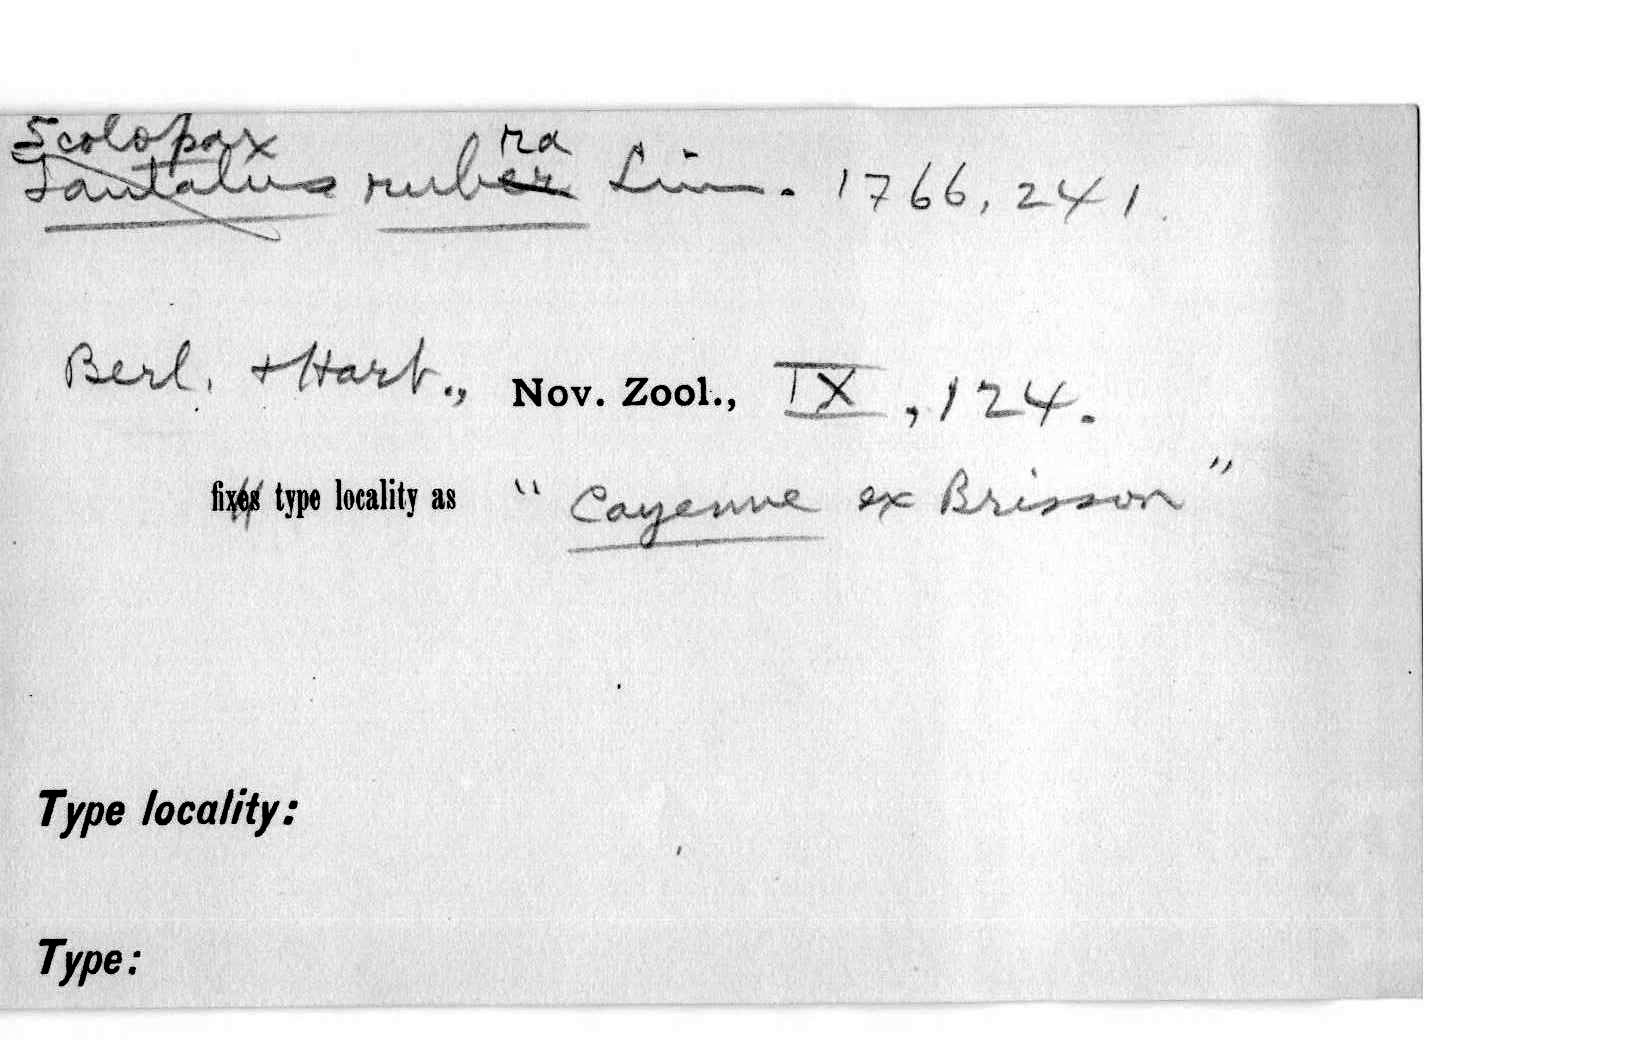 Scolopax ra
Tantalus ruber Linn. 1766, 241.
Berl. + Hart., Nov. Zool., IX, 124.
fixes type locality as "Cayenne ex Brisson"
Type locality:
Type: